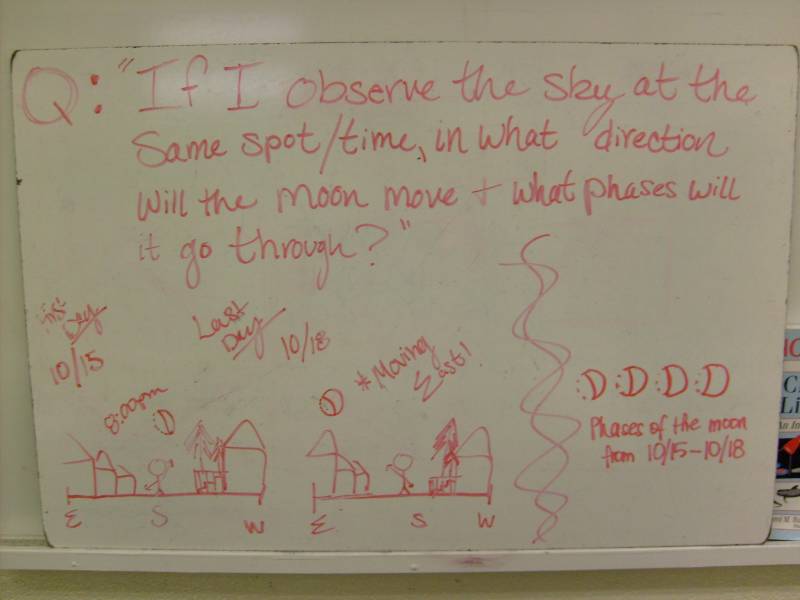 Q: "If I observe the sky at the
same spot/time, in what direction
will the moon move + what phases will
it go through?"
First
Day
10/15
Last
Day
10/18
8:00pm
* Moving
East!
E S W
E S W
Phases of the moon
from 10/15-10/18